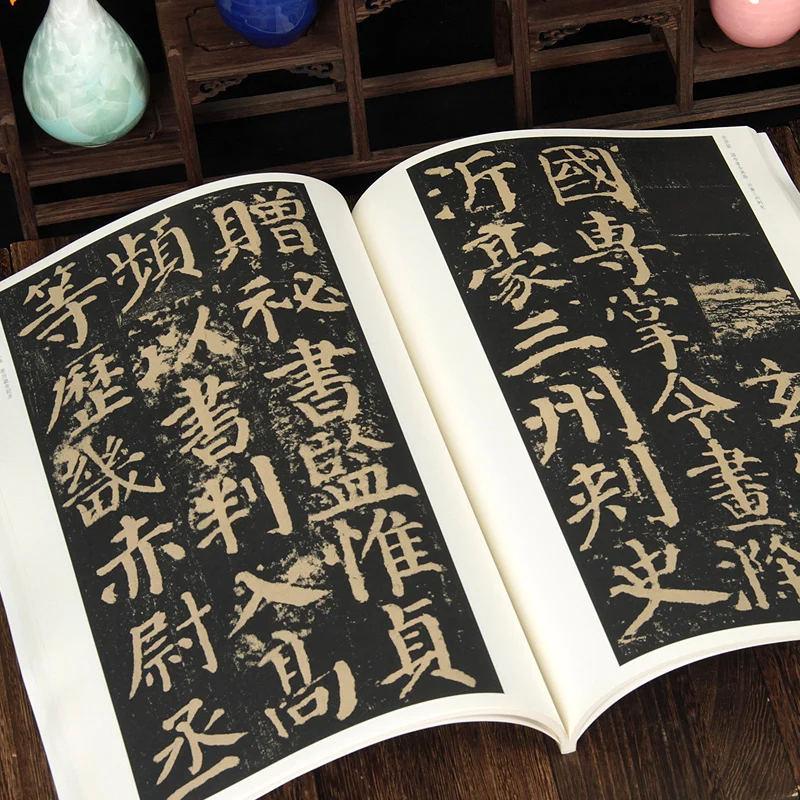 玄
國專掌令畫滁
沂豪三州刺史
贈祕書監惟貞
頻以書判入高
等歷畿赤尉丞